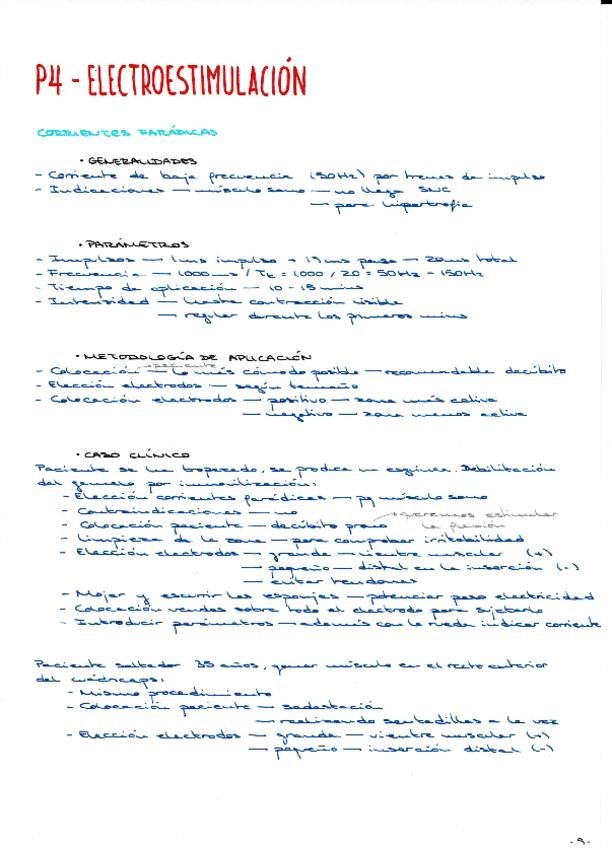 P4 - ELECTROESTIMULACIÓN
CORRIENTES FARÁDICAS
• GENERALIDADES
- Corriente de baja frecuencia (50Hz) por trenes de impulso
- Indicaciones — músculo sano — no llega SNC
— para hipertrofia
• PARÁMETROS
- Impulsos — 1ms impulso + 19ms pausa — 20ms total
- Frecuencia — 1000 ms / Tt = 1000 / 20 = 50Hz - 150Hz
- Tiempo de aplicación — 10 - 15 mins
- Intensidad — hasta contracción visible
— regular durante los primeros mins
• METODOLOGÍA DE APLICACIÓN
- Colocación paciente — lo más cómodo posible — recomendable decúbito
- Elección electrodos — según tamaño
- Colocación electrodos — positivo — zona más activa
— negativo — zona menos activa
• CASO CLÍNICO
Paciente se ha tropezado, se produce un esguince. Debilitación
del gemelo por inmovilización:
- Elección corrientes farádicas — pq músculo sano
- Contraindicaciones — no
- Colocación paciente — decúbito prono → queremos estimular la flexión
- Limpieza de la zona — para comprobar irritabilidad
- Elección electrodos — grande — vientre muscular (+)
— pequeño — distal en la inserción (-)
— evitar tendones
- Mojar y escurrir las esponjas — potenciar paso electricidad
- Colocación vendas sobre todo el electrodo para sujetarlo
- Introducir parámetros — además con la rueda indicar corriente
Paciente saltador 35 años, ganar músculo en el recto anterior
del cuádriceps:
- Mismo procedimiento
- Colocación paciente — sedestación
— realizando sentadillas a la vez
- Elección electrodos — grande — vientre muscular (+)
— pequeño — inserción distal (-)
- 9 -